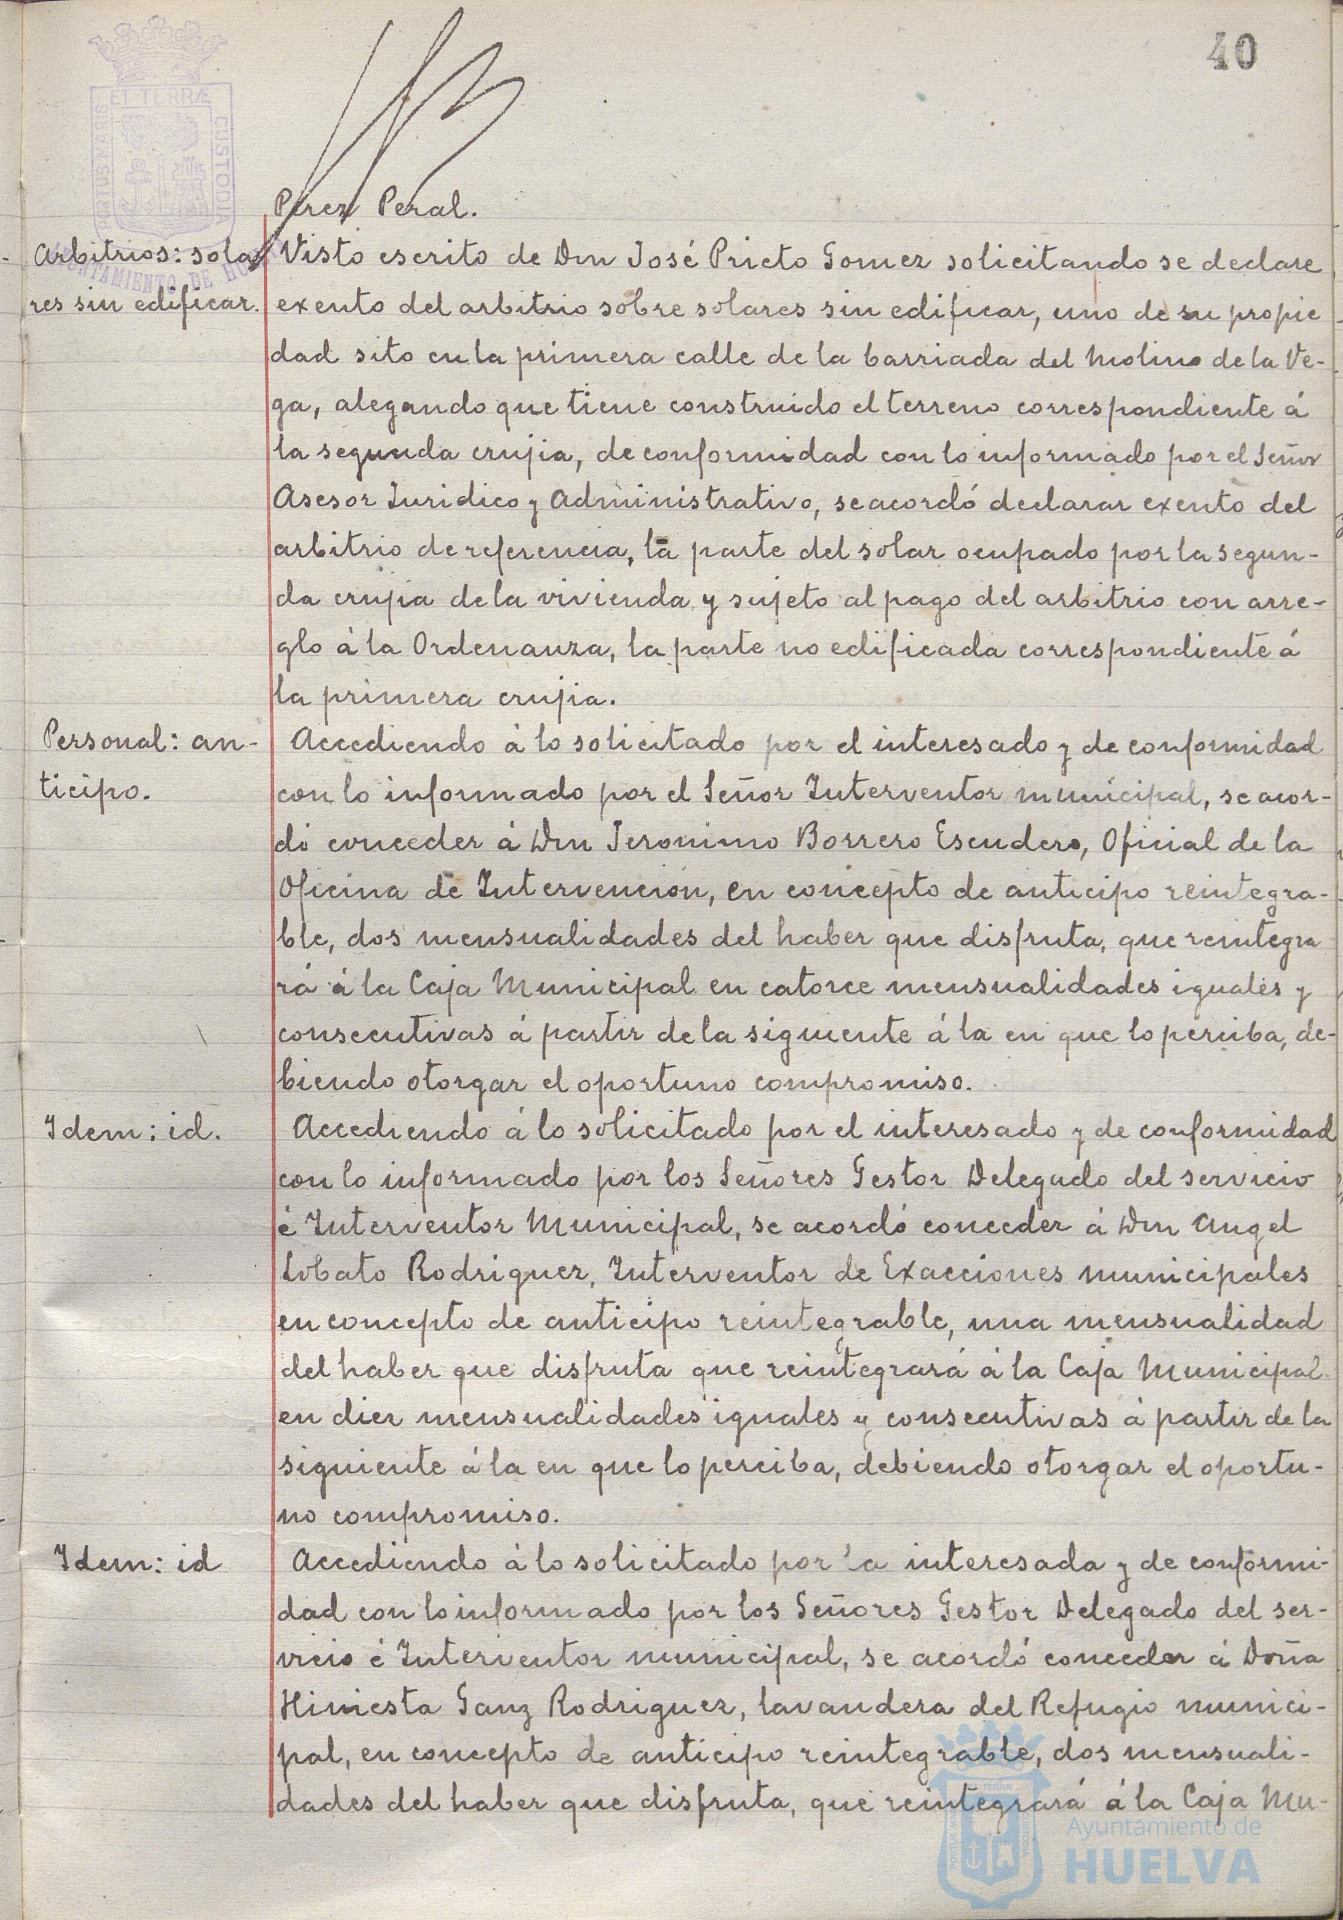 40
PORTUS MARIS ET TERRÆ CUSTODIA
AYUNTAMIENTO DE HUELVA
Perez Peral.
Arbitrios: sola
res sin edificar.
Visto escrito de Don José Prieto Gomez solicitando se declare
exento del arbitrio sobre solares sin edificar, uno de su propie
dad sito en la primera calle de la barriada del Molino de la Ve-
ga, alegando que tiene construido el terreno correspondiente á
la segunda crujia, de conformidad con lo informado por el Señor
Asesor Juridico y Administrativo, se acordó declarar exento del
arbitrio de referencia, la parte del solar ocupado por la segun-
da crujia de la vivienda y sujeto al pago del arbitrio con arre-
glo á la Ordenanza, la parte no edificada correspondiente á
la primera crujia.
Personal: an-
ticipo.
Accediendo á lo solicitado por el interesado y de conformidad
con lo informado por el Señor Interventor municipal, se acor-
dó conceder á Don Jeronimo Borrero Escudero, Oficial de la
Oficina de Intervención, en concepto de anticipo reintegra-
ble, dos mensualidades del haber que disfruta, que reintegra
rá á la Caja Municipal en catorce mensualidades iguales y
consecutivas á partir de la siguiente á la en que lo perciba, de-
biendo otorgar el oportuno compromiso.
Idem: id.
Accediendo á lo solicitado por el interesado y de conformidad
con lo informado por los Señores Gestor Delegado del servicio
é Interventor Municipal, se acordó conceder á Don Angel
Lobato Rodriguez, Interventor de Exacciones municipales
en concepto de anticipo reintegrable, una mensualidad
del haber que disfruta que reintegrará á la Caja Municipal
en diez mensualidades iguales y consecutivas á partir de la
siguiente á la en que lo perciba, debiendo otorgar el oportu-
no compromiso.
Idem: id
Accediendo á lo solicitado por la interesada y de conformi-
dad con lo informado por los Señores Gestor Delegado del ser-
vicio é Interventor municipal, se acordó conceder á Doña
Hiniesta Sanz Rodriguez, lavandera del Refugio munici-
pal, en concepto de anticipo reintegrable, dos mensuali-
dades del haber que disfruta, que reintegrará á la Caja Mu-
Ayuntamiento de
HUELVA